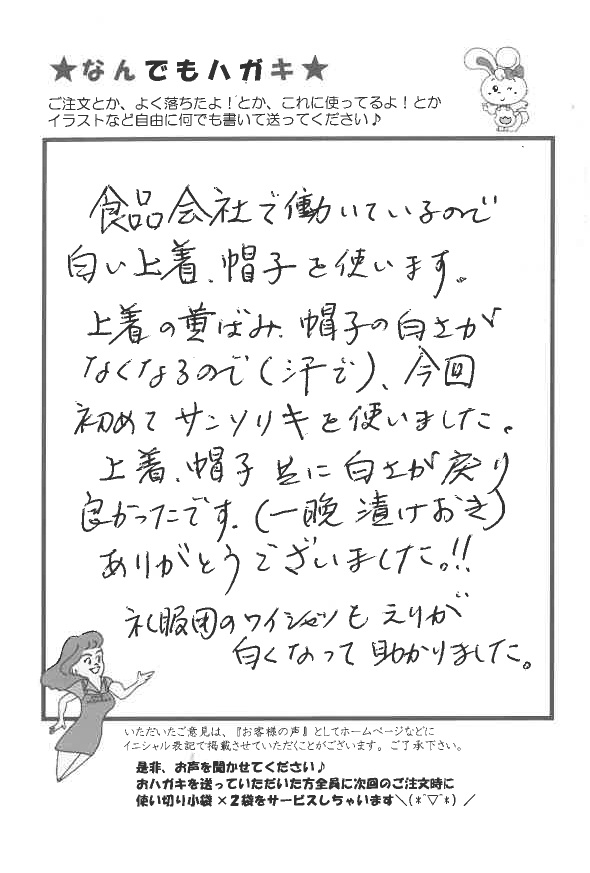 ★なんでもハガキ★
ご注文とか、よく落ちたよ！とか、これに使ってるよ！とか
イラストなど自由に何でも書いて送ってください♪
食品会社で働いているので
白い上着、帽子を使います。
上着の黄ばみ、帽子の白さが
なくなるので(汗で)、今回
初めてサンソリキを使いました。
上着、帽子 共に白さが戻り
良かったです。(一晩 漬けおき)
ありがとうございました。!!
礼服用のワイシャツも えりが
白くなって 助かりました。
いただいたご意見は、『お客様の声』としてホームページなどに
イニシャル表記で掲載させていただくことがございます。ご了承下さい。
是非、お声を聞かせてください♪
おハガキを送っていただいた方全員に次回のご注文時に
使い切り小袋×２袋をサービスしちゃいます＼(*^▽^*)／